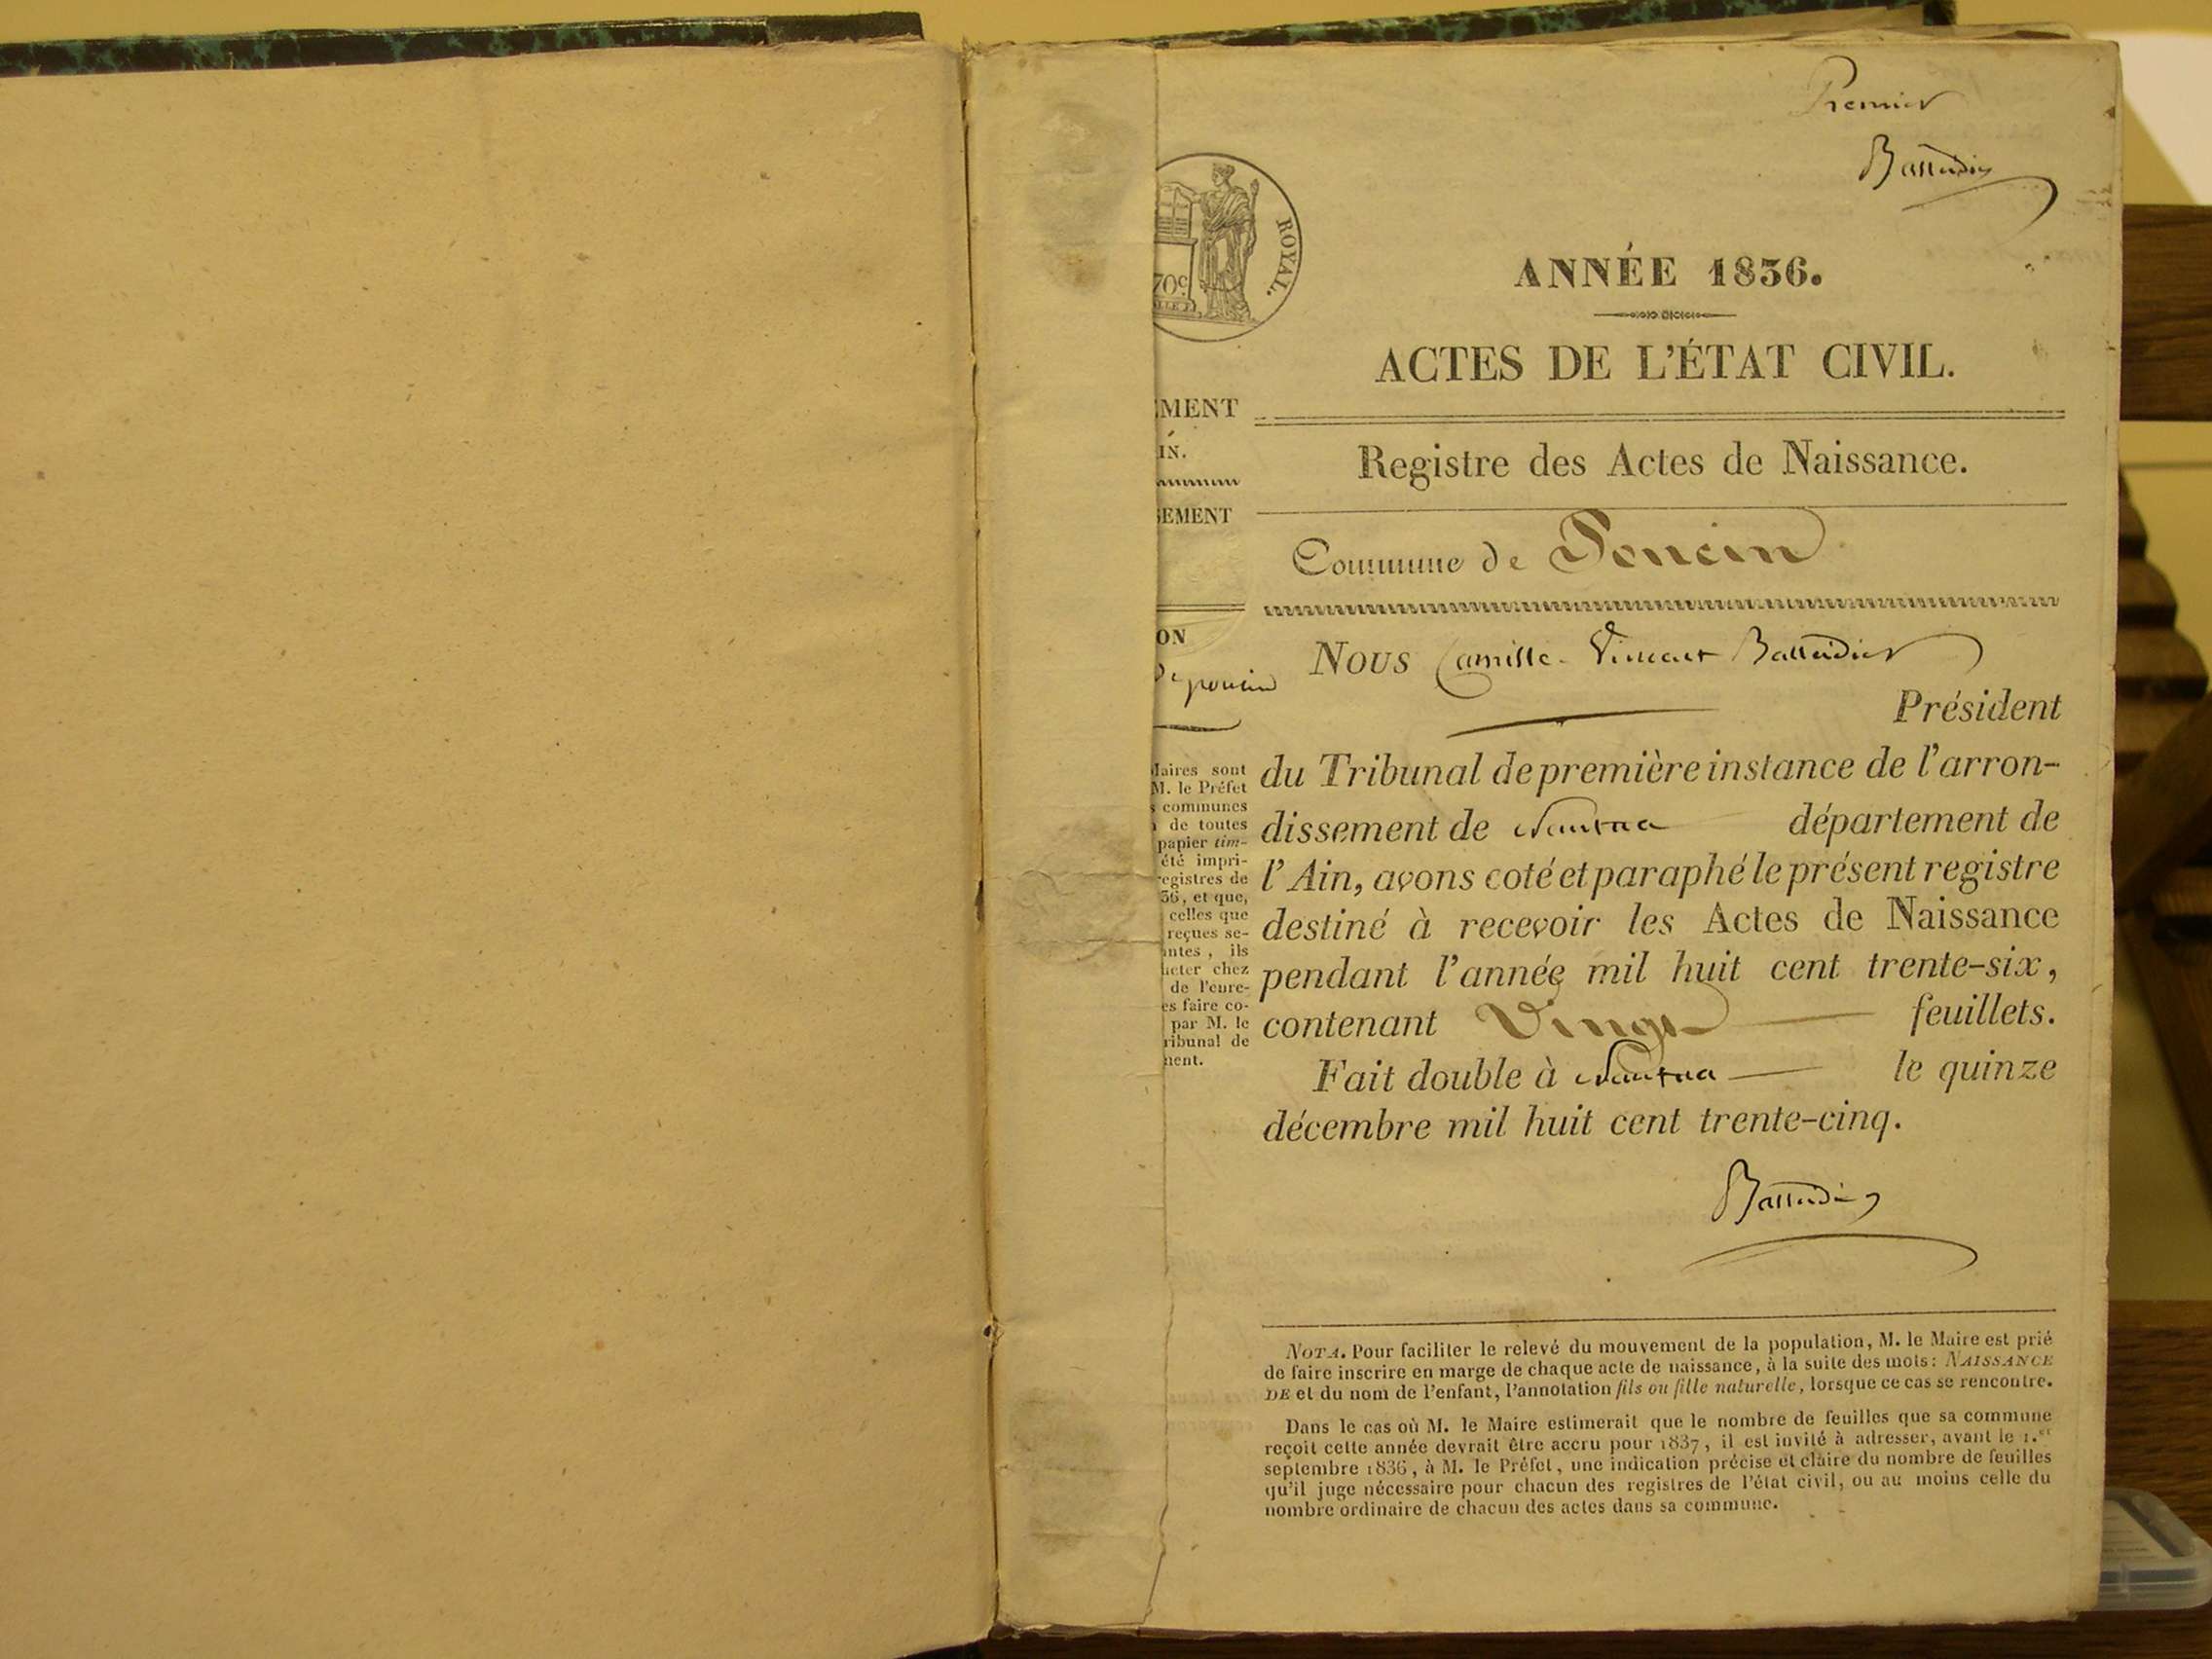 Premier
ROYAL.
70c.
ANNÉE 1836.
ACTES DE L'ÉTAT CIVIL.
Registre des Actes de Naissance.
Commune de Poncin
Nous Camille-Vincent
Président
du Tribunal de première instance de l'arron-
dissement de Nantua département de
l'Ain, avons coté et paraphé le présent registre
destiné à recevoir les Actes de Naissance
pendant l'année mil huit cent trente-six,
contenant Vingt feuillets.
Fait double à Nantua le quinze
décembre mil huit cent trente-cinq.
NOTA. Pour faciliter le relevé du mouvement de la population, M. le Maire est prié
de faire inscrire en marge de chaque acte de naissance, à la suite des mots: NAISSANCE
DE et du nom de l'enfant, l'annotation fils ou fille naturelle, lorsque ce cas se rencontre.
Dans le cas où M. le Maire estimerait que le nombre de feuilles que sa commune
reçoit cette année devrait être accru pour 1837, il est invité à adresser, avant le 1.er
septembre 1836, à M. le Préfet, une indication précise et claire du nombre de feuilles
qu'il juge nécessaire pour chacun des registres de l'état civil, ou au moins celle du
nombre ordinaire de chacun des actes dans sa commune.
MENT
IN.
EMENT
ON
De poncin
Maires sont
M. le Préfet
s communes
de toutes
papier tim-
été impri-
registres de
36, et que,
celles que
reçues se-
ntes, ils
heter chez
de l'enre-
es faire co-
par M. le
ribunal de
ment.